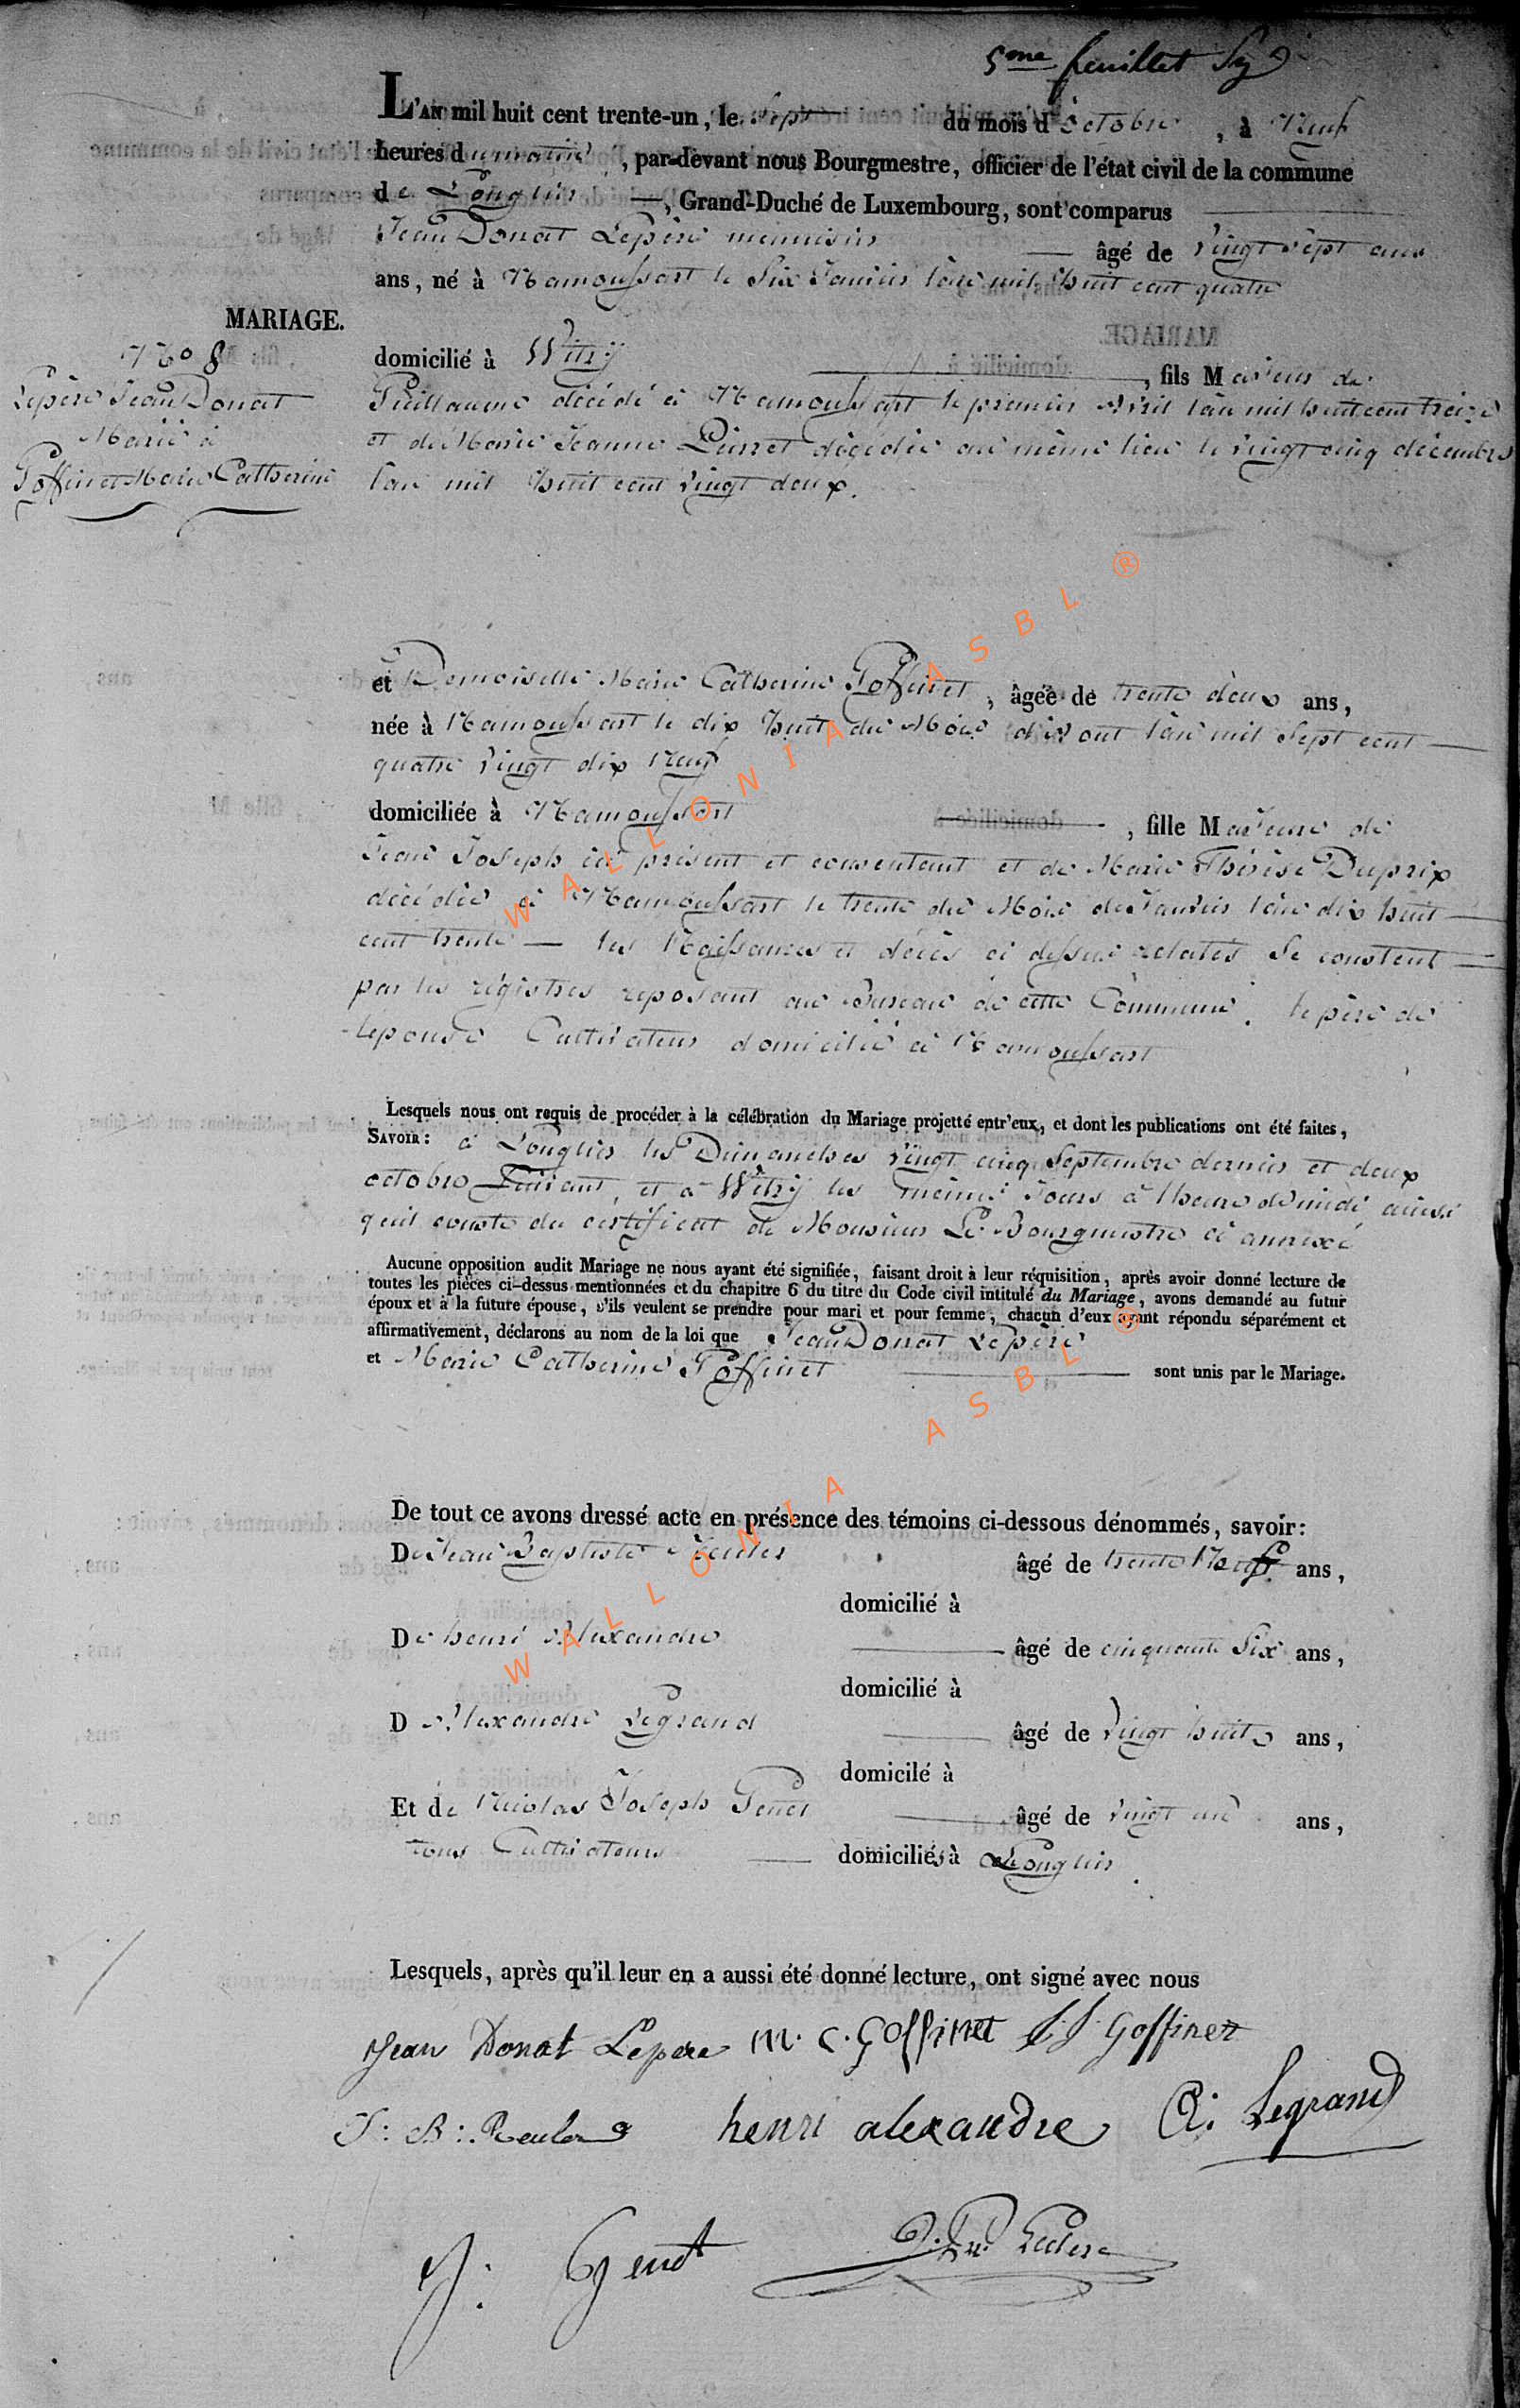 5me feuillet
L'AN mil huit cent trente-un, le Sept du mois d'octobre, à Neuf
heures du matin, par-devant nous Bourgmestre, officier de l'état civil de la commune
de Longlier, Grand-Duché de Luxembourg, sont comparus
Jean Donat Lepère menuisier âgé de Vingt Sept ans
ans, né à Namoussart le Six Janvier l'an mil huit cent quatre
MARIAGE.
No 8
Lepère Jean Donat
Marié à
Goffinet Marie Catherine
domicilié à Witry, fils Majeur de
Guillaume décédé à Namoussart le premier Avril l'an mil huit cent treize
et de Marie Jeanne Pierret décédée au même lieu le vingt cinq décembre
l'an mil huit cent vingt deux.
et Demoiselle Marie Catherine Goffinet, âgée de trente deux ans,
née à Namoussart le dix huit du Mois d'Aout l'an mil Sept cent
quatre vingt dix Neuf
domiciliée à Namoussart, fille Majeure de
Jean Joseph ici présent et consentant et de Marie Thérèse Duprix
décédée à Namoussart le trente du Mois de Janvier l'an dix huit
cent trente — les Naissances et décès ci dessus relatés Se constent
par les régistres reposant au Bureau de cette Commune. le père de
l'épouse Cultivateur domicilié à Namoussart
Lesquels nous ont requis de procéder à la célébration du Mariage projetté entr'eux, et dont les publications ont été faites,
SAVOIR: à Longlier les Dimanches vingt cinq Septembre dernier et deux
octobre, et à Witry les même Jours à l'heure de midi ainsi
qu'il conste du certificat de Monsieur Le Bourgmestre ci annexé
Aucune opposition audit Mariage ne nous ayant été signifiée, faisant droit à leur réquisition, après avoir donné lecture de
toutes les pièces ci-dessus mentionnées et du chapitre 6 du titre du Code civil intitulé du Mariage, avons demandé au futur
époux et à la future épouse, s'ils veulent se prendre pour mari et pour femme, chacun d'eux ayant répondu séparément et
affirmativement, déclarons au nom de la loi que Jean Donat Lepère
et Marie Catherine Goffinet sont unis par le Mariage.
De tout ce avons dressé acte en présence des témoins ci-dessous dénommés, savoir:
De Jean Baptiste Reuler âgé de trente Neuf ans,
domicilié à
De henri Alexandre âgé de cinquante Six ans,
domicilié à
D Alexandre Legrand âgé de Vingt huit ans,
domicilé à
Et de Nicolas Joseph Genet âgé de vingt un ans,
tous Cultivateurs domiciliés à Longlier.
Lesquels, après qu'il leur en a aussi été donné lecture, ont signé avec nous
Jean Donat Lepere M. C. Goffinet J J Goffinet
J: B: Reuler henri alexandre A: Legrand
J: Genet
WALLONIA ASBL ®
WALLONIA ASBL ®